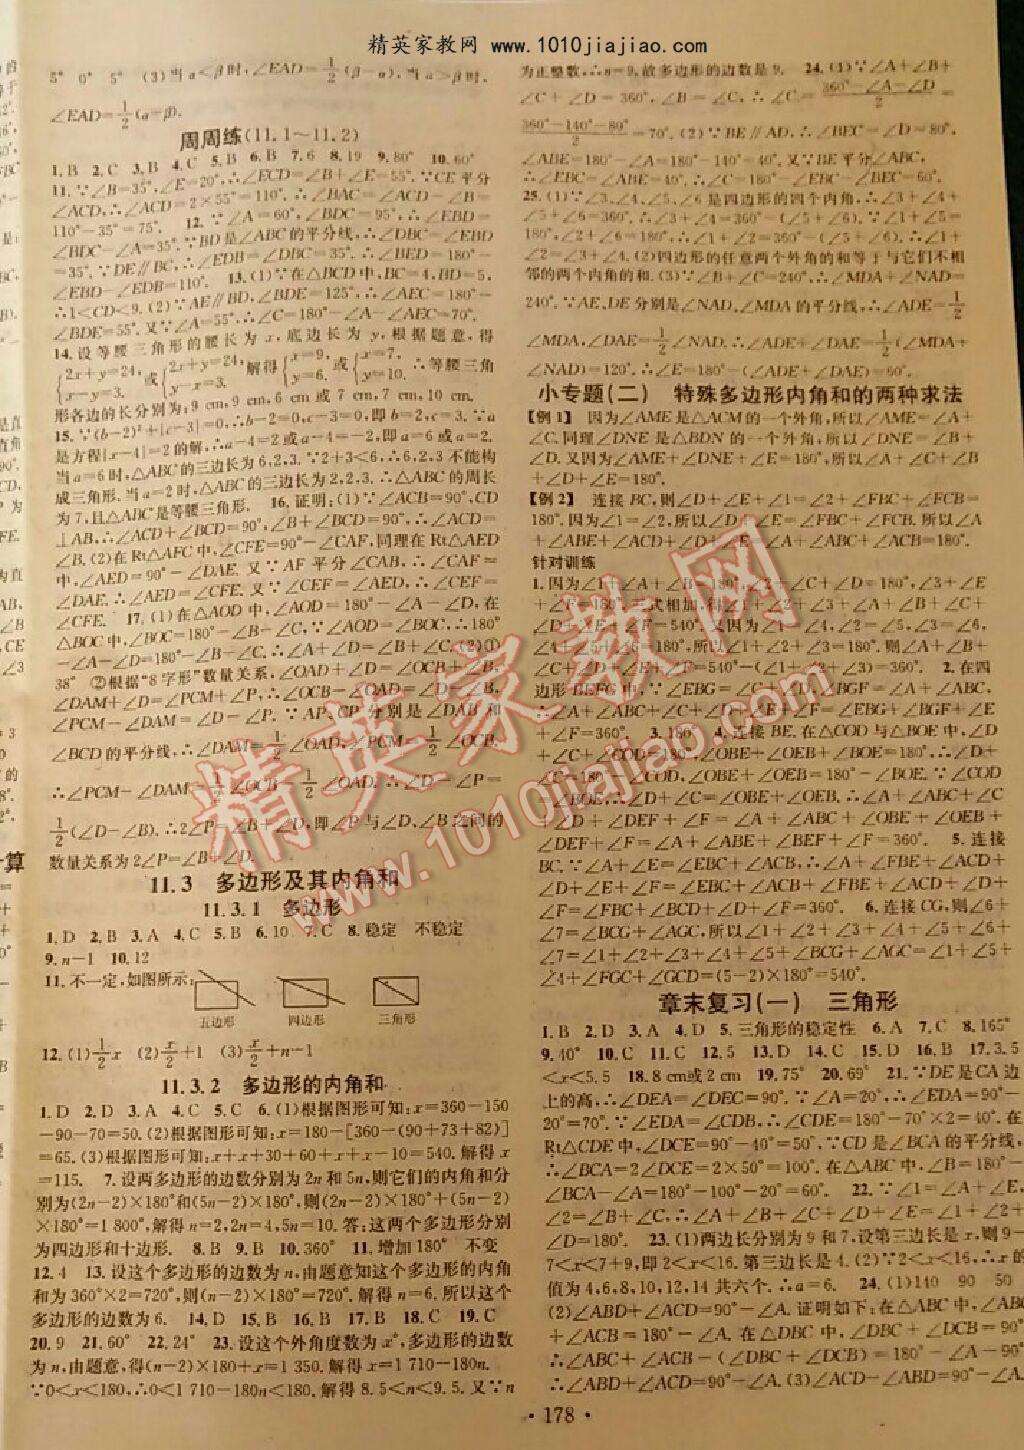 精英家教网 www.1010jiajiao.com
5° 0° 5° (3)当α<β时,∠EAD=1/2(β-α),当α>β时,
∠EAD=1/2(α-β).
周周练(11.1~11.2)
1.B 2.C 3.B 4.C 5.B 6.B 7.6 8.19 9.80° 10.60°
11.∵∠B=35°,∠E=20°,∴∠ECD=∠B+∠E=55°.∵CE平分
∠ACD,∴∠ACD=2×55°=110°.∴∠BAC=∠ACD-∠B=
110°-35°=75°. 12.∵∠A=60°,∠BDC=95°,∴∠EBD=
∠BDC-∠A=35°.∵BD是∠ABC的平分线,∴∠DBC=∠EBD
=35°.∵DE∥BC,∴∠EDB=∠DBC=35°.∴∠BED=180°-
∠EBD-∠EDB=110°. 13.(1)∵在△BCD中,BC=4,BD=5,
∴1<CD<9.(2)∵AE∥BD,∠BDE=125°,∴∠AEC=180°-
∠BDE=55°.又∵∠A=55°,∴∠C=180°-∠A-∠AEC=70°.
14.设等腰三角形的腰长为x,底边长为y,根据题意,得
{2x+y=24, x-y=3. 或{2x+y=24, y-x=3. 解得{x=9, y=6. 或{x=7, y=10. ∴等腰三角
形各边的长分别为:9 cm,9 cm,6 cm 或 7 cm,7 cm,10 cm.
15.∵(b-2)²+|c-3|=0,∴b-2=0,c-3=0,即b=2,c=3.∵a
是方程|x-4|=2的解,∴a-4=2或a-4=-2,即a=6或a=2.
当a=6时,△ABC的三边长为6,2,3.∵2+3<6,∴6,2,3不能构
成三角形.当a=2时,△ABC的三边长为2,2,3.∴△ABC的周长
为7,且△ABC是等腰三角形. 16.证明:(1)∵∠ACB=90°,CD
⊥AB,∴∠ACD+∠BCD=90°,∠B+∠BCD=90°.∴∠ACD=
∠B.(2)在Rt△AFC中,∠CFE=90°-∠CAF,同理在Rt△AED
中,∠AED=90°-∠DAE.又∵AF平分∠CAB,∴∠CAF=
∠DAE.∴∠AED=∠CFE.又∵∠CEF=∠AED,∴∠CEF=
∠CFE. 17.(1)在△AOD中,∠AOD=180°-∠A-∠D,在
△BOC中,∠BOC=180°-∠B-∠C,∵∠AOD=∠BOC,∴180°
-∠A-∠D=180°-∠B-∠C.∴∠A+∠D=∠B+∠C.(2)①
38° ②根据“8字形”数量关系,∠OAD+∠D=∠OCB+∠B,
∠DAM+∠D=∠PCM+∠P,∴∠OCB-∠OAD=∠D-∠B,
∠PCM-∠DAM=∠D-∠P.∵AP、CP分别是∠DAB和
∠BCD的平分线,∴∠DAM=1/2∠OAD,∠PCM=1/2∠OCB.
∴∠PCM-∠DAM=1/2∠OCB-1/2∠OAD.∴∠D-∠P=
1/2(∠D-∠B).∴2∠P=∠B+∠D,即∠P与∠D、∠B之间的
数量关系为2∠P=∠B+∠D.
11.3 多边形及其内角和
11.3.1 多边形
1.D 2.B 3.A 4.C 5.B 6.10 7.C 8.稳定 不稳定
9.n-1 10.12
11.不一定,如图所示:
五边形 四边形 三角形
12.(1)1/2x (2)x/2+1 (3)x/2+n-1
11.3.2 多边形的内角和
1.D 2.D 3.A 4.C 5.C 6.(1)根据图形可知:x=360-150
-90-70=50.(2)根据图形可知:x=180-[360-(90+73+82)]
=65.(3)根据图形可知:x+x+30+60+x+x-10=540.解得x
=115. 7.设两多边形的边数分别为2n和5n,则它们的内角和分
别为(2n-2)×180°和(5n-2)×180°,则(2n-2)×180°+(5n-2)
×180°=1 800°,解得n=2,2n=4,5n=10.答:这两个多边形分别
为四边形和十边形. 8.B 9.B 10.360° 11.增加180° 不变
12.4 13.设这个多边形的边数为n,由题意知这个多边形的内角
和为360°×2=720°,则(n-2)×180°=720°.解得n=6.所以这个
多边形的边数为6. 14.D 15.B 16.B 17.B 18.C 19.C
20.9 21.60° 22.24° 23.设这个外角度数为x°,多边形的边数
为n,由题意,得(n-2)×180+x=1 350.解得x=1 710-180n.
∵0<x<180,∴0<1 710-180n<180.解得8.5<n<9.5.又∵n
为正整数,∴n=9.故多边形的边数是9. 24.(1)∵∠A+∠B+
∠C+∠D=360°,∠B=∠C,∴∠C=(360°-∠A-∠D)/2=
(360°-140°-80°)/2=70°.(2)∵BE∥AD,∴∠BEC=∠D=80°,
∠ABE=180°-∠A=180°-140°=40°.又∵BE平分∠ABC,
∴∠EBC=∠ABE=40°.∴∠C=180°-∠EBC-∠BEC=60°.
25.(1)∵∠3、∠4、∠5、∠6是四边形的四个内角,∴∠3+∠4+
∠5+∠6=360°.∴∠3+∠4=360°-(∠5+∠6).∵∠1+∠5=
180°,∠2+∠6=180°,∴∠1+∠2=360°-(∠5+∠6).∴∠1+
∠2=∠3+∠4.(2)四边形的任意两个外角的和等于与它们不相
邻的两个内角的和.(3)∵∠B+∠C=240°,∴∠MDA+∠NAD=
240°.∵AE、DE分别是∠NAD、∠MDA的平分线,∴∠ADE=1/2
∠MDA,∠DAE=1/2∠NAD.∴∠ADE+∠DAE=1/2(∠MDA+
∠NAD)=120°.∴∠E=180°-(∠ADE+∠DAE)=60°.
小专题(二) 特殊多边形内角和的两种求法
【例1】 因为∠AME是△ACM的一个外角,所以∠AME=∠A+
∠C.同理∠DNE是△BDN的一个外角,所以∠DNE=∠B+
∠D.又因为∠AME+∠DNE+∠E=180°,所以∠A+∠B+∠C
+∠D+∠E=180°.
【例2】 连接BC,则∠D+∠E+∠1=∠2+∠FBC+∠FCB=
180°.因为∠1=∠2,所以∠D+∠E=∠FBC+∠FCB.所以∠A
+∠ABE+∠ACD+∠D+∠E=∠A+∠ABC+∠ACB=180°.
针对训练
1.因为∠1+∠A+∠B=180°,∠2+∠C+∠D=180°,∠3+∠E
+∠F=180°,三式相加,得∠1+∠2+∠3+∠A+∠B+∠C+
∠D+∠E+∠F=540°.又因为∠1=∠4,∠2=∠5,∠3=∠6,
∠4+∠5+∠6=180°,所以∠1+∠2+∠3=180°.则∠A+∠B+
∠C+∠D+∠E+∠F=540°-(∠1+∠2+∠3)=360°. 2.在四
边形BEFG中,∵∠EBG=∠C+∠D,∠BGF=∠A+∠ABC,
∴∠A+∠ABC+∠C+∠D+∠E+∠F=∠EBG+∠BGF+∠E
+∠F=360°. 3.180° 4.连接BE.在△COD与△BOE中,∠D
+∠C+∠COD=180°,∠OBE+∠OEB+∠BOE=180°,∴∠D+
∠C=180°-∠COD,∠OBE+∠OEB=180°-∠BOE.∵∠COD
=∠BOE,∴∠D+∠C=∠OBE+∠OEB.∴∠A+∠ABC+∠C
+∠D+∠DEF+∠F=∠A+∠ABC+∠OBE+∠OEB+
∠DEF+∠F=∠A+∠ABE+∠BEF+∠F=360°. 5.连接
BC.∵∠A+∠E=∠EBC+∠ACB,∴∠A+∠FBE+∠ACD+
∠D+∠E+∠F=∠EBC+∠ACB+∠FBE+∠ACD+∠D+
∠F=∠FBC+∠BCD+∠D+∠F=360°. 6.连接CG,则∠6+
∠7=∠BCG+∠AGC,所以∠1+∠2+∠3+∠4+∠5+∠6+
∠7=∠1+∠2+∠3+∠4+∠5+∠BCG+∠AGC=∠1+∠5+
∠4+∠FGC+∠GCD=(5-2)×180°=540°.
章末复习(一) 三角形
1.B 2.D 3.A 4.D 5.三角形的稳定性 6.A 7.C 8.165°
9.40° 10.C 11.C 12.5 13.D 14.C 15.D 16.B 17.3.5
<x<5.5 18.8 cm或2 cm 19.75° 20.69° 21.∵DE是CA边
上的高,∴∠DEA=∠DEC=90°.∵∠A=20°,∴∠EDA=90°-
20°=70°.∵∠EDA=∠CDB,∴∠CDE=180°-70°×2=40°.在
Rt△CDE中,∠DCE=90°-40°=50°,∵CD是∠BCA的平分线,
∴∠BCA=2∠DCE=2×50°=100°.在△ABC中,∠B=180°-
∠BCA-∠A=180°-100°-20°=60°. 22.∵∠1=∠A+∠E,
∠2=∠B+∠C,∴∠A+∠B+∠C+∠D+∠E=∠1+∠2+
∠D=180°. 23.(1)两边长分别为9和7,设第三边长是x,则9-
7<x<7+9,即2<x<16.第三边长是4.(2)∵2<x<16,∴x的
值为4,6,8,10,12,14共六个.∴a=6. 24.(1)140 90 50
(2)∠ABD+∠ACD=90°-∠A.证明如下:在△ABC中,∠ABC
+∠ACB=180°-∠A.在△DBC中,∠DBC+∠DCB=90°.
∴∠ABC+∠ACB-(∠DBC+∠DCB)=180°-∠A-90°.
∴∠ABD+∠ACD=90°-∠A.(3)∠ACD-∠ABD=90°-∠A.
• 178 •
精英家教网
www.1010jiajiao.com